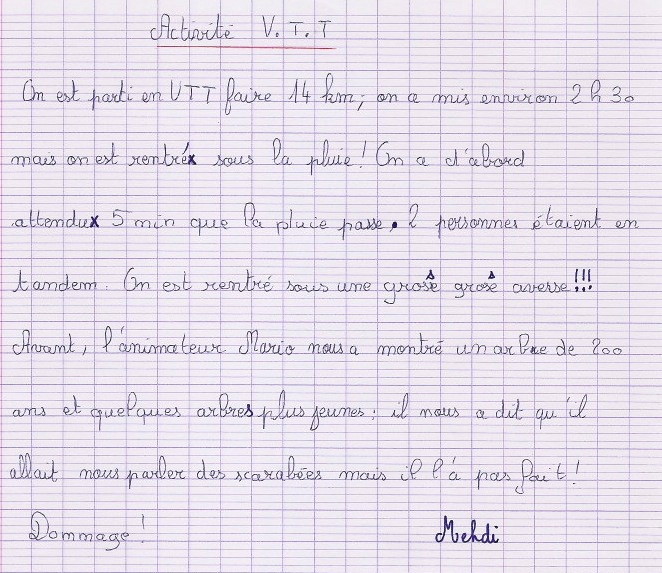 Activité V.T.T
On est parti en VTT faire 14 km; on a mis environ 2 h 30
mais on est rentré sous la pluie! On a d'abord
attendu 5 min que la pluie passe. 2 personnes étaient en
tandem. On est rentré sous une grosse grosse averse!!!
Avant, l'animateur Mario nous a montré un arbre de 200
ans et quelques arbres plus jeunes; il nous a dit qu'il
allait nous parler des scarabées mais il l'à pas fait!
Dommage!
Mehdi